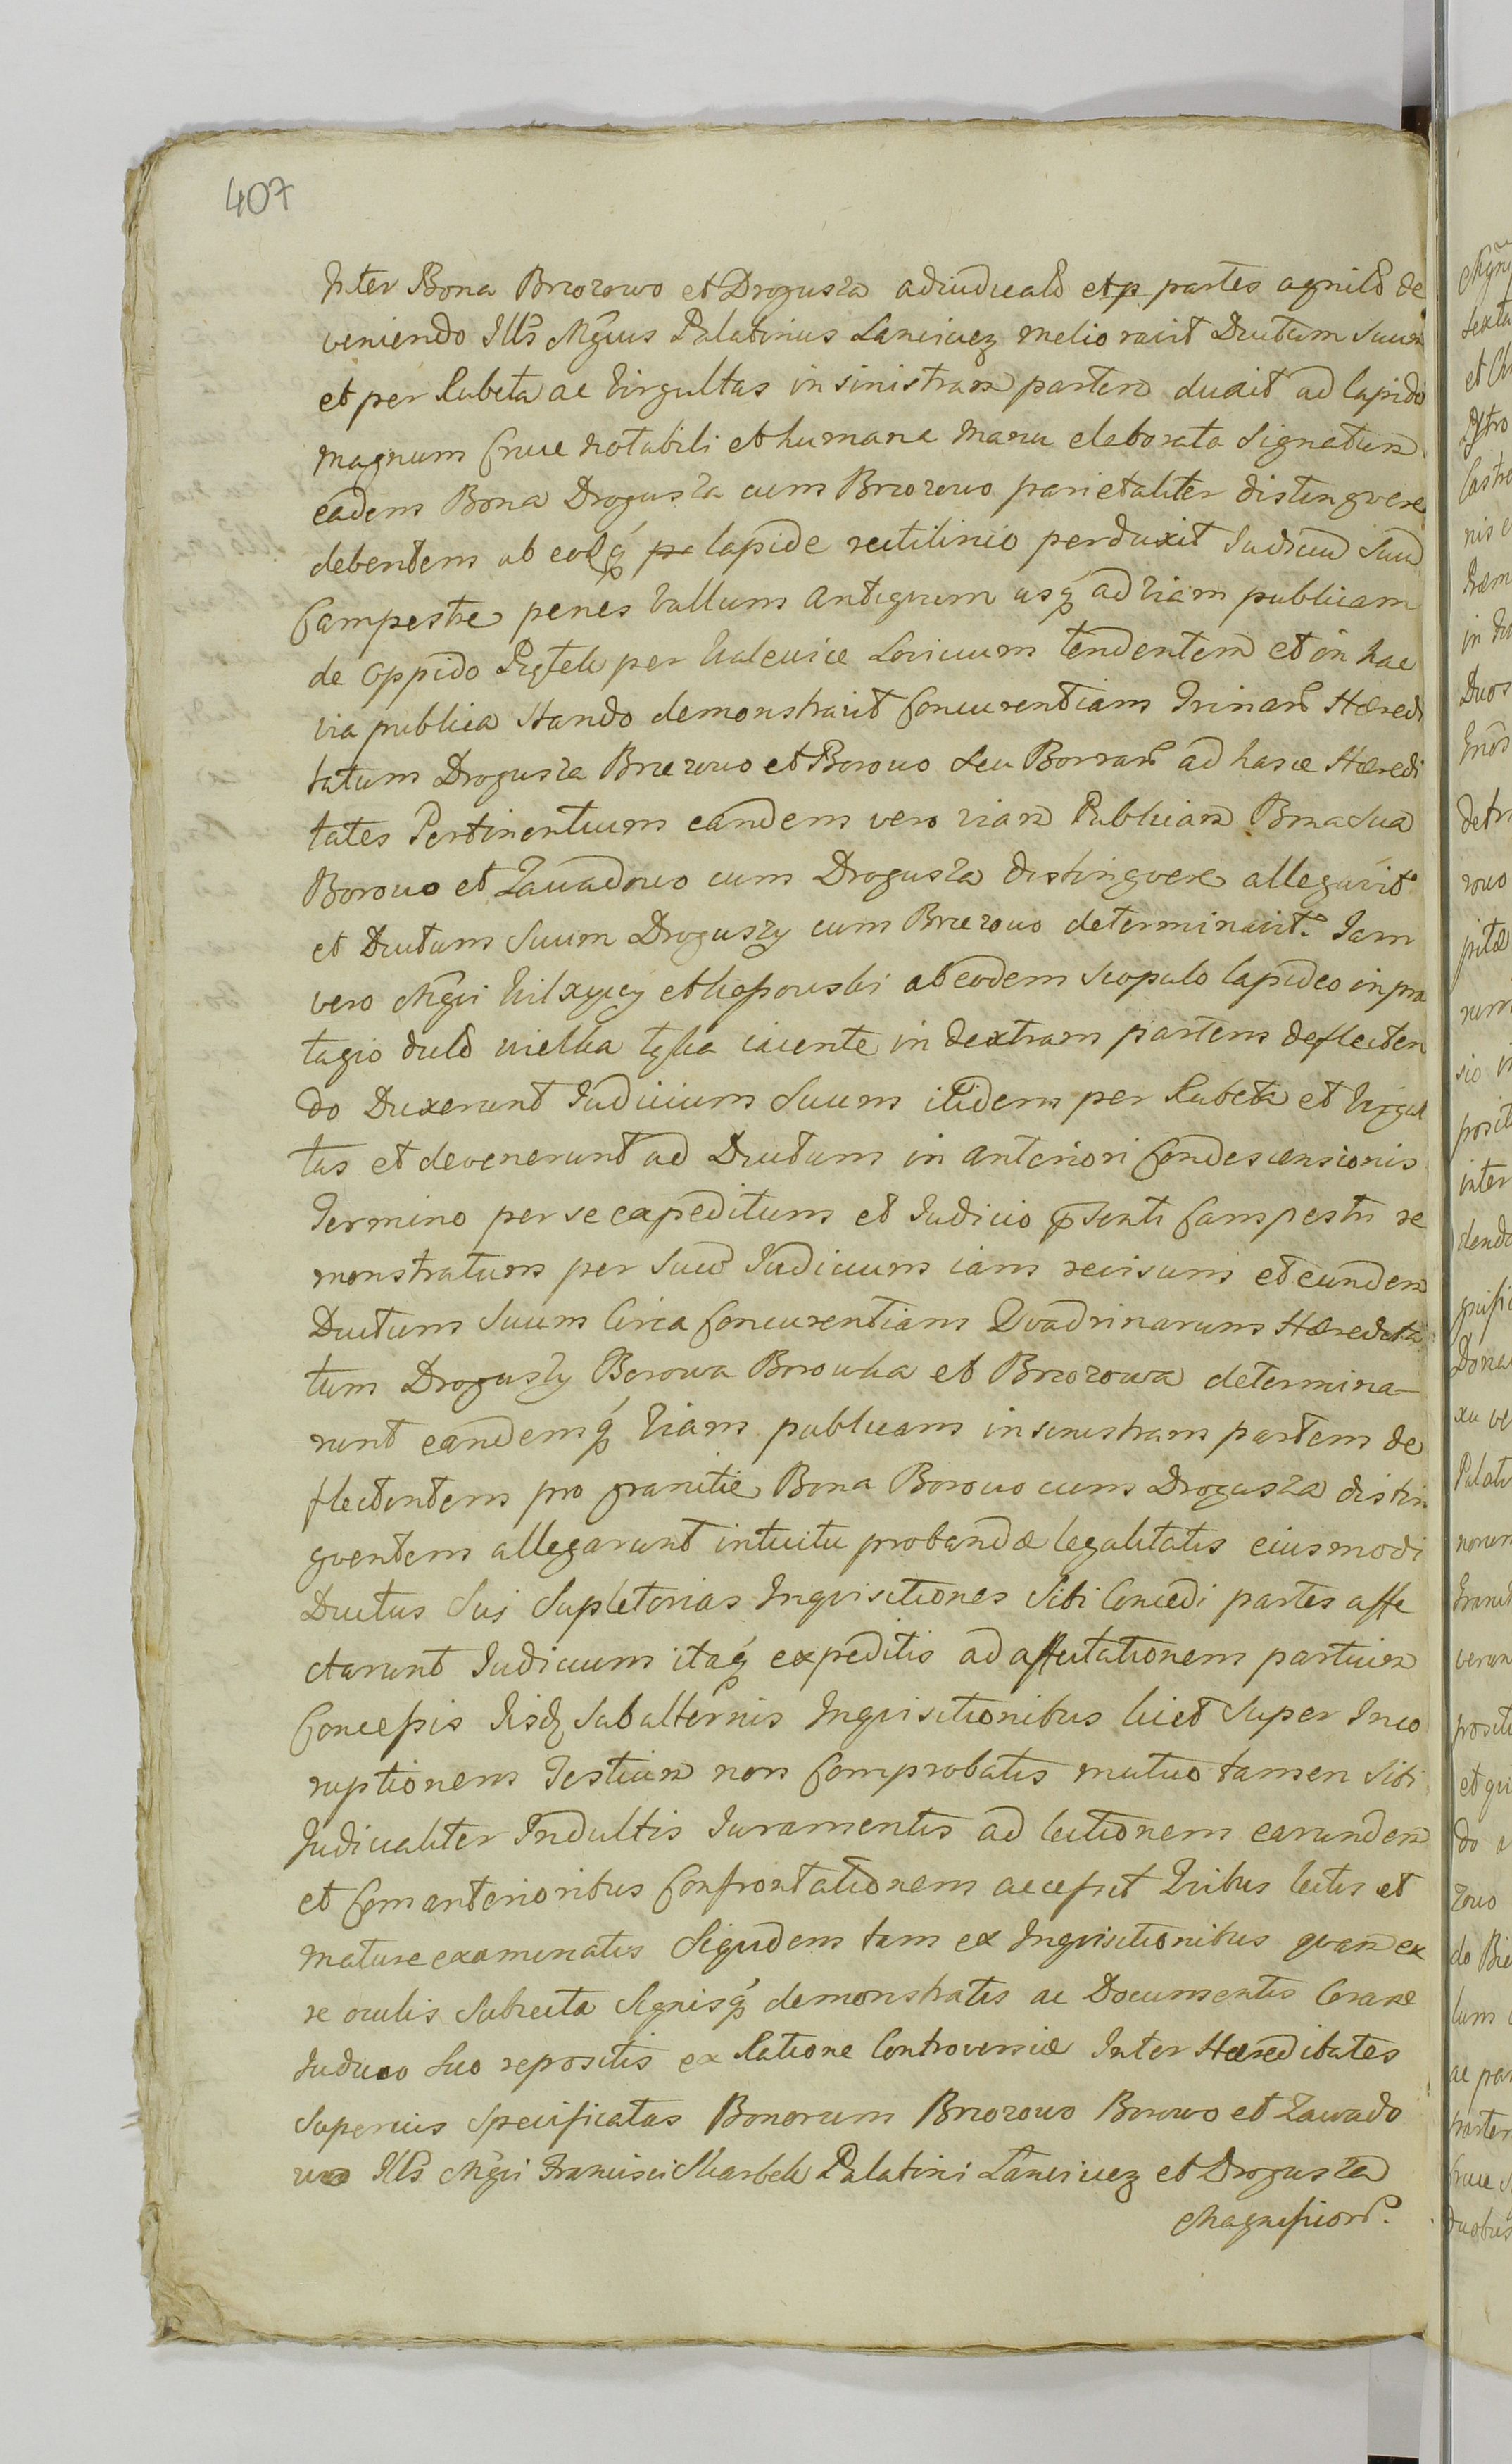 407
Inter Bona Brzozowo et Drogusza adiudicato et p partes agnito de
veniendo Ill̃s Mg̃cus Palatinus Lancicież melioravit Ductum Suum
et per Rubeta ac Virgultas in sinistram partem duxit ad lapidẽ
magnum Cruce notabili et humana manu elaborata Signatum
eadem Bona Drogusza cum Brzozowo parietaliter distingvere
debentem ab eoq́ pe lapide rectilinio perduxit Iudicium Suum
Campestre penes Vallum Antiquum usq́ ad Viam publicam
de oppido Piątek per Walewice Lovicium tendentem et in hac
via publica Stando demonstravit Concurentiam Trinarũ Hæredi
tatum Drogusza Brzezowo et Borowo seu Borrarũ ad hasce Hæredi
tates Pertinentium eandem vero viam Publicam Bona Sua
Borowo et Zawadowo cum Drogusza distingvere allegavit
et Ductum Suum Droguszy cum Brzezowo determinavit. Iam
vero Mg̃ci Wilxyccy et Kossowski ab eodem Scopulo lapideo in pra
tagio dicto wielka łąka iacente in dextram partem deflecten
do Duxerunt Iudicium Suum itidem per Rubeta et Virgul
tas et devenerunt ad Ductum in anteriori Condescensionis
Termino per se expeditum et Iudicio p̃senti Campestri re
monstratum per Suũ Iudicium iam revisum et eundem
Ductum Suum Circa Concurentiam Qvadrinarum Hæredita
tum Droguszy Borowa Borowka et Brzozowa determina-
runt eandemq́ Viam publicam in sinistram partem de
flectentem pro granitie Bona Borowo cum Drogusza distin
gventem allegarunt intuitu probandæ legalitatis eiusmodi
Ductus Sui Supletorias Inqvisitiones Sibi Concedi partes affe
ctarunt Iudicium itaq́ expeditis ad affectationem partium
Concessis Iisdẽ Subalternis Inqvisitionibus licet Super Inco
ruptionem Testium non Comprobatis mutuo tamen Sibi
Iudicialiter Indultis Iuramentis ad lectionem earundem
et Com anterioribus Confrontationem accessit Qvibus lectis et
mature examinatis Siqvidem tam ex Inqvisitionibus qvam ex
re oculis Subiecta Signisq́ demonstratis ac Documentis Coram
Iudicio Suo repositis ex Ratione Controversiæ Inter Hæreditates
Superius Specificatas Bonorum Brzozowo Borowo et Zawado
wo Ill̃s Mg̃ci Francisci Skarbek Palatini Lancicież et Drogusza
Magnificorũ.